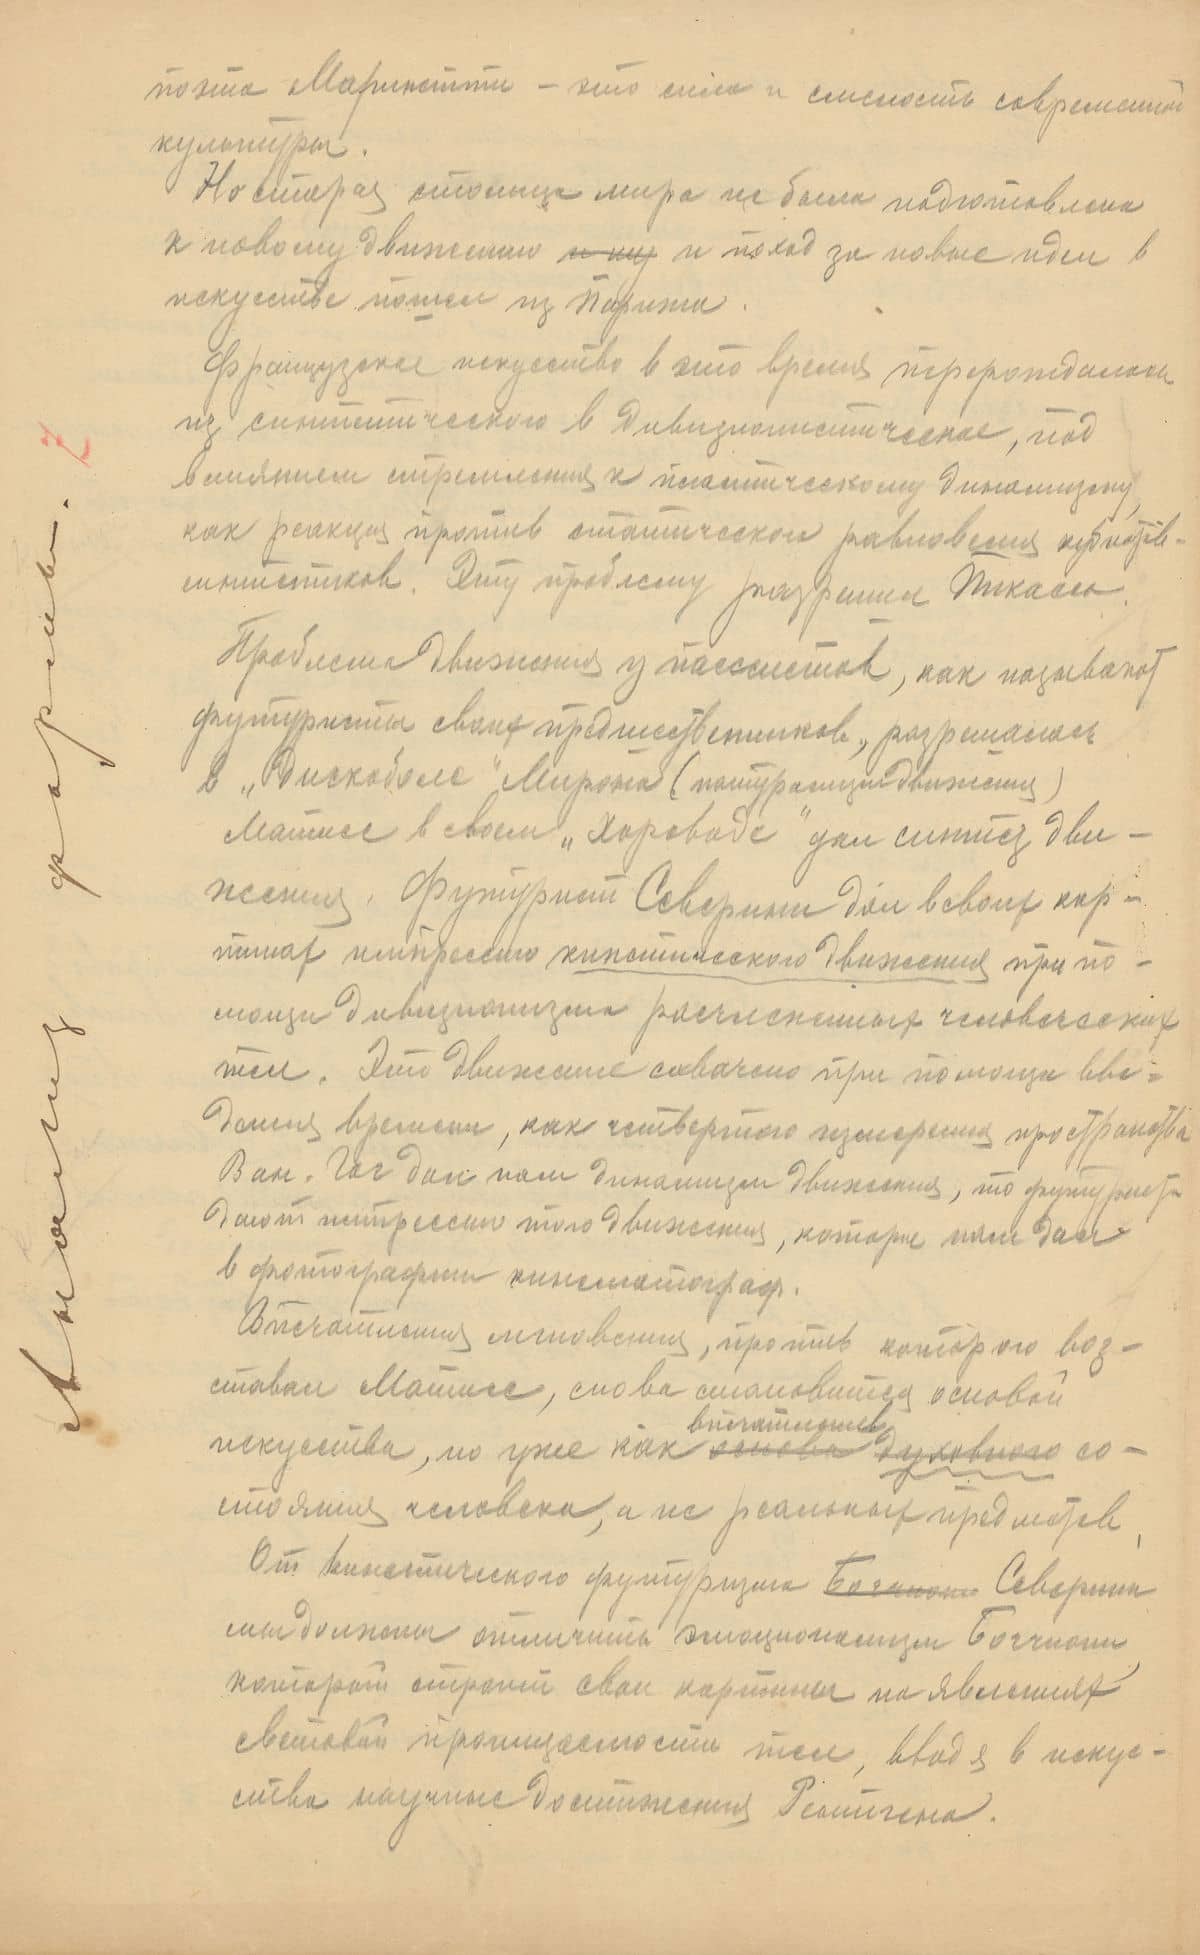 поэта Маринетти – это сила и смелость современной
культуры.
Но старая столица мира не была подготовлена
к новому движению и поход за новые идеи в
искусстве пошел из Парижа.
Французское искусство в это время перерождалось
из синтетического в дивизионистическое, под
влиянием стремления к пластическому динамизму,
как реакция против статического равновесия кубистов-
синтетиков. Эту проблему разрешил Пикассо.
Проблема движения у пассеистов, как называют
футуристы своих предшественников, разрешалась
в „Дискоболе" Мирона (концентрации движения)
Матисс в своем „Хороводе" дал синтез дви-
жения. Футурист Северини дал в своих кар-
тинах импрессию кинетического движения при по-
мощи дивизионизма расчлененных человеческих
тел. Это движение схвачено при помощи вве-
дения времени, как четвертого измерения пространства
Ван. Гог дал нам динамизм движения, то футуристы
дают импрессию того движения, которое нам дал
в фотографии кинематограф.
Впечатления мгновения, против которого воз-
ставал Матисс, снова становится основой
искусства, но уже как основа впечатления духовного со-
стояния человека, а не реальных предметов.
От кинетического футуризма Боччони Северини
мы должны отличить эмоционализм Боччиони,
который строит свои картины на явлениях
световой проницаемости тел, вводя в искус-
ство научные достижения Рентгена.
Анализ формы. 7